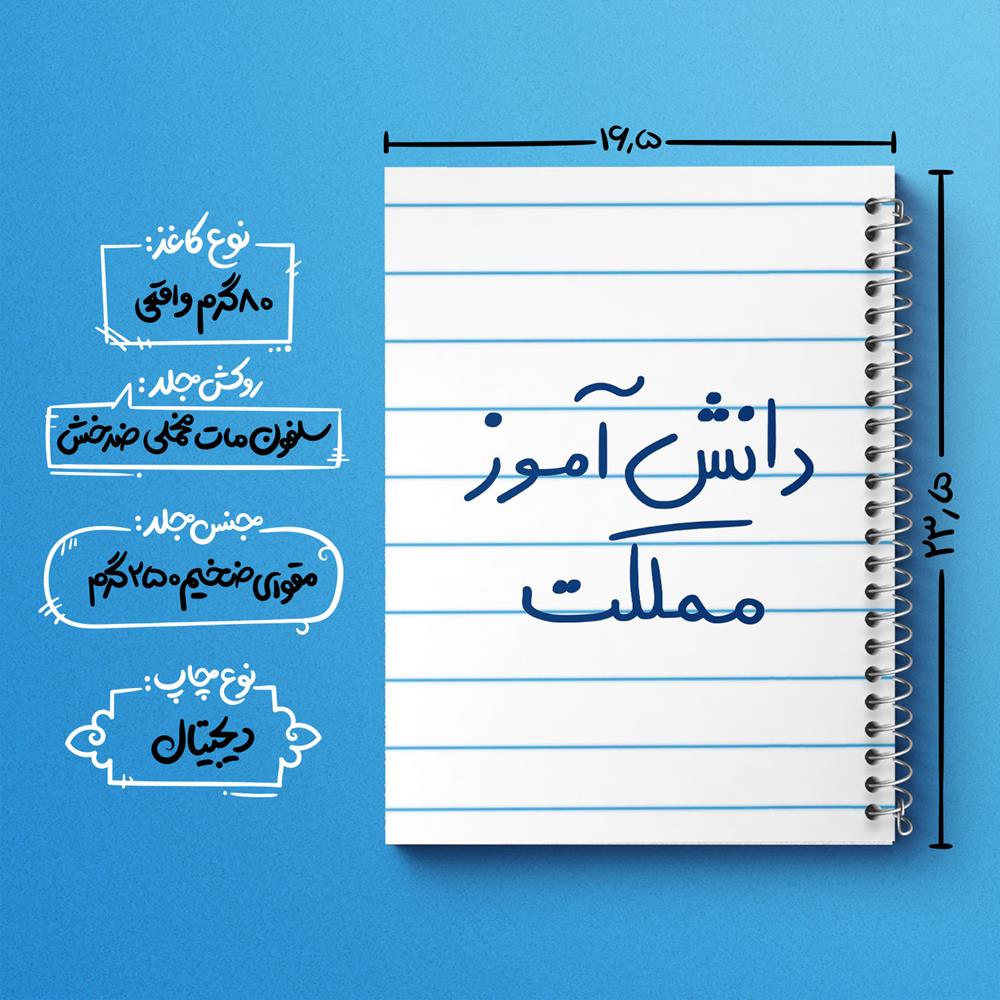 ۱۶٫۵
۲۳٫۵
دانش آموز
مملکت
نوع کاغذ:
۸۰ گرم واقعی
روکش جلد:
سلفون مات مخملی ضدخش
جنس جلد:
مقوای ضخیم ۲۵۰ گرم
نوع چاپ:
دیجیتال